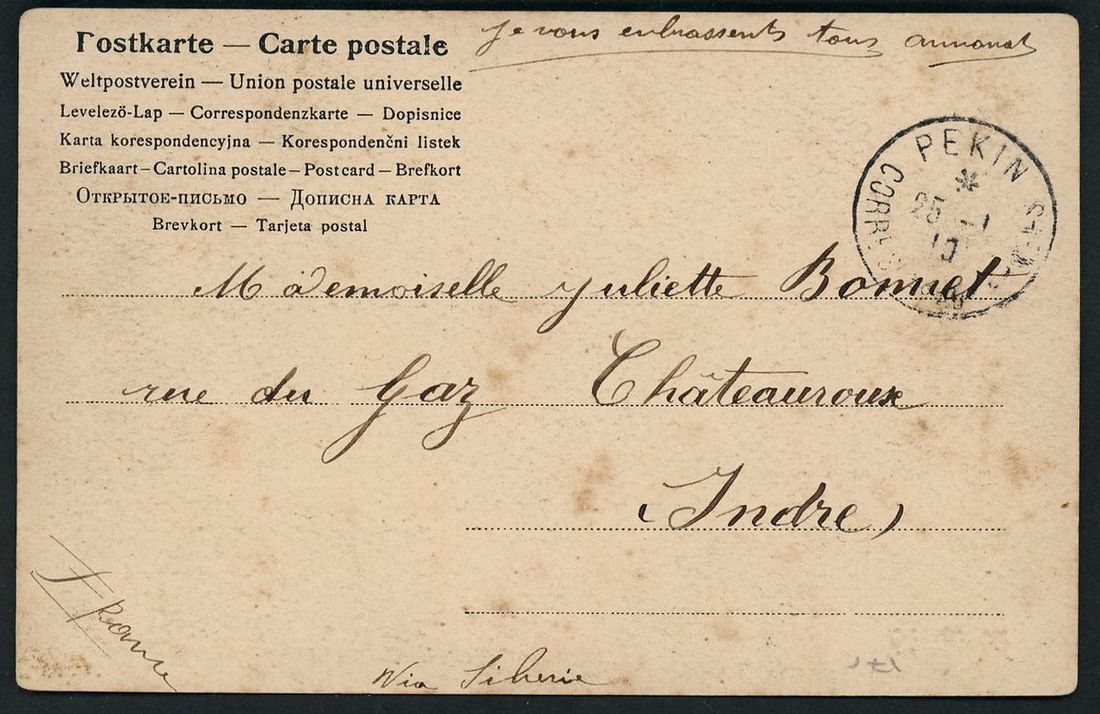 Postkarte — Carte postale
Weltpostverein — Union postale universelle
Levelezö-Lap — Correspondenzkarte — Dopisnice
Karta korespondencyjna — Korespondenčni listek
Briefkaart – Cartolina postale – Post card – Brefkort
Открытое-письмо — Дописна карта
Brevkort — Tarjeta postal
je vous enbrassents tous
PEKIN
CORRES
25 -1
10
Mademoiselle Juliette Bonnet
rue du Gaz Châteauroux
(Indre)
France
Via Siberie